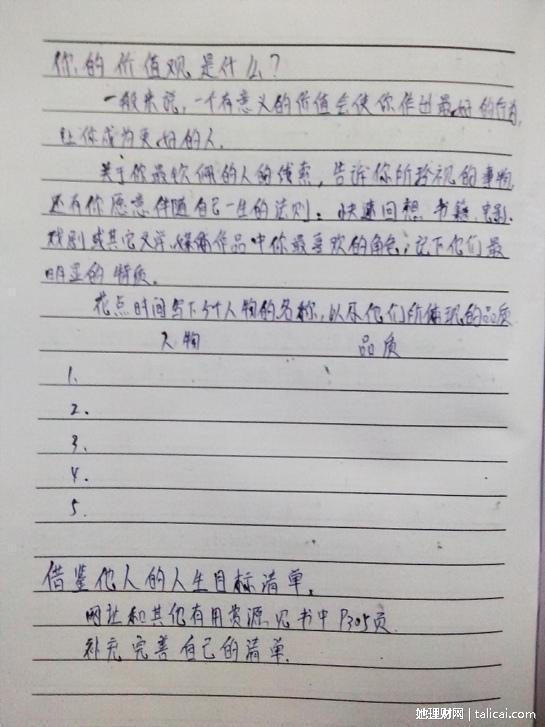 你的价值观是什么?
一般来说,一个有意义的价值会使你作出最好的行为,
让你成为更好的人.
关于你最钦佩的人的线索,告诉你所珍视的事物,
还有你愿意伴随自己一生的法则:快速回想书籍、电影、
戏剧或其它文学、媒体作品中你最喜欢的角色;记下他们最
明显的特质.
花点时间写下5个人物的名称,以及他们所体现的品质
人物 品质
1.
2.
3.
4.
5.
借鉴他人的人生目标清单.
网址和其他有用资源见书中P305页.
补充完善自己的清单.
她理财网 / talicai.com